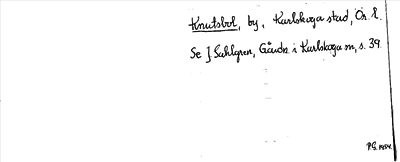 Knutsbol, by, Karlskoga stad, Ör. l.
Se J Sahlgren, Gårdn. i Karlskoga sn, s. 39.
P.G. 1954.